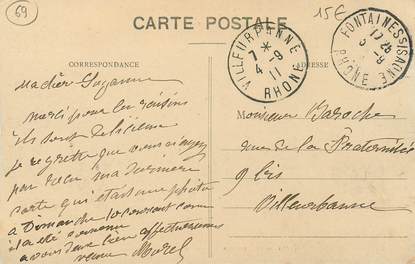 69
15€
CARTE POSTALE
CORRESPONDANCE
ADRESSE
VILLEURBANNE
7 *
4 - 9
11
RHONE
FONTAINES S/SAONE
RHONE
Ma chère Suzanne
merci pour les raisins
ils sont délicieux
je regrette que vous n'ayez
pas reçu ma dernière
carte qui était une photo
à Dimanche
a vous deux bien affectueusement
Morel
Monsieur Baroche
rue de la Fraternité
9 bis
Villeurbanne